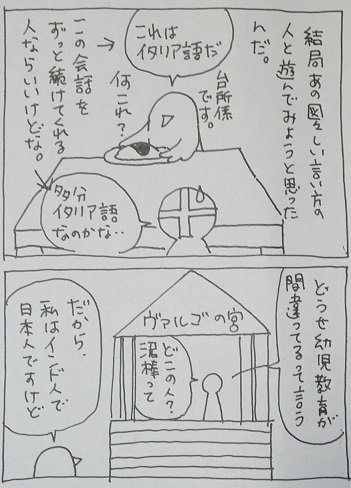 結局あの図々しい言い方の
人と遊んでみようと思った
んだ。
これは
イタリア語だ
台所係
です。
何これ？
この会話を
ずっと続けてくれる
人ならいいけどな。
多分
イタリア語
なのかな‥
どうせ幼児教育が
間違ってるって言う
ヴァルゴの宮
どこの人？
沼棒って
だから、
私はインド人で
日本人ですけど